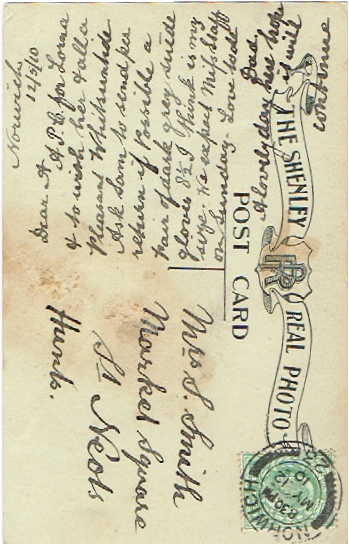 Norwich
12/5/10
Dear A
A P.C. for Lorna
& to wish her & all a
Pleasant Whitsuntide
Ask Sam to send per
return if possible a
Pair of dark grey suède
gloves 8½ I think is my
size. We expect Miss Staff
on Sunday - Love to all
Dad
A lovely day here hope
it will
continue
THE SHENLEY
REAL PHOTO
POST CARD
Mrs S. Smith
Market Square
St Neots
Hunts.
NORWICH
MY 12
10